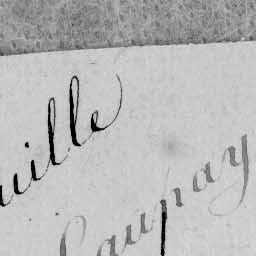 uille
Caupay